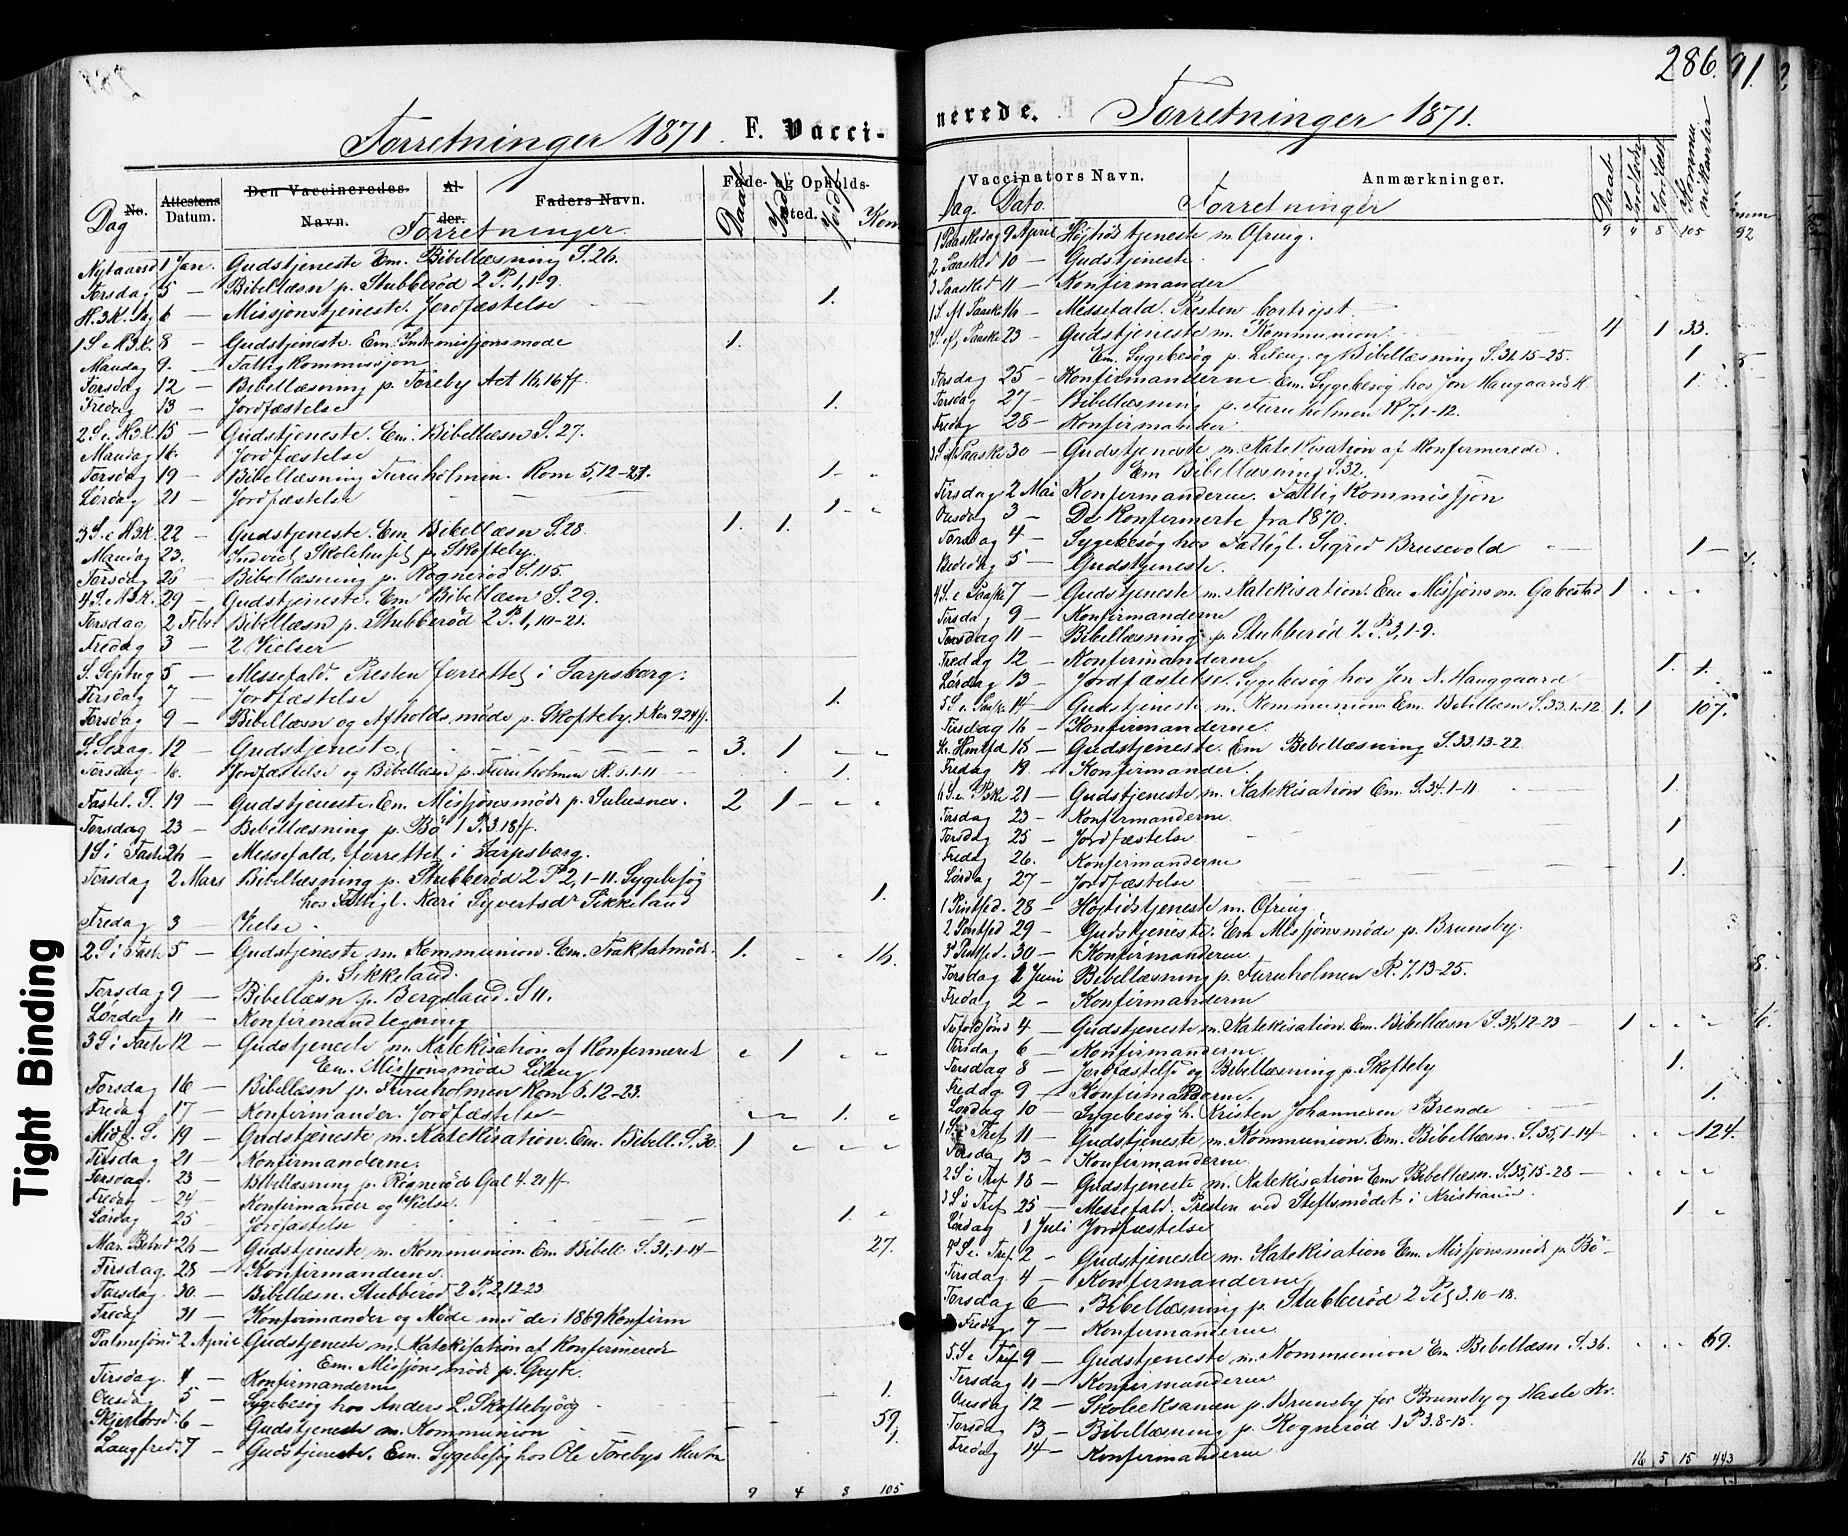 Forretninger 1871. F. Vacci-
No. Attestens Datum. Den Vaccineredes Navn. Al-der. Faders Navn. Føde- og Opholds-sted.
Dag Forretninger Daab Jordf Kom
Nytaarsd 1 Jan. Gudstjeneste Em. Bibellæsning S. 26.
Torsdag 5 — Bibellæsn p. Stubberød 2 P. 1, 1-9.
H. 3 K. Dag 6 — Missjonstjeneste. Jordfæstelse — — 1.
1 S e H3K. 8 — Gudstjeneste. Em. Indremissjonsmøde 1.
Mandag 9. — Fattigkommissjon
Torsdag 12 — Bibellæsning p. Toreby Act 16, 16 ff.
Fredag 13 — Jordfæstelse 1.
2 S. e. H3K. 15 — Gudstjeneste. Em. Bibellæsn S. 27.
Mandag 16. — Jordfæstelse
Torsdag 19 — Bibellæsning Furuholmen. Rom 5, 12-21. 1.
Lørdag 21 — Jordfæstelse — — — 1 -
3 S. e H3K. 22 — Gudstjeneste. Em. Bibellæsn S. 28. 1. 1.
Mandag 23. — Indviet Skolehuset p. Skofteby.
Torsdag 26 — Bibellæsning p. Rognerød S. 115.
4 S. e H3K. 29 — Gudstjeneste. Em Bibellæsn S. 29.
Torsdag 2 Febr Bibellæsn p. Stubberød 2 P. 1, 10-21.
Fredag 3 — 2 Vielser
S. Septug 5 — Messefald. Presten forrettet i Sarpsborg.
Tirsdag 7 — Jordfæstelse 1.
Torsdag 9 — Bibellæsn og Afholdsmøde p. Skofteby. 1 Kor 9 24 ff.
S. Sexag. 12 — Gudstjeneste — — — 3. 1 — -
Torsdag 16. — Jordfæstelse og Bibellæsn p. Furuholmen R. 6. 1-11 — 1.
Fastel. S. 19 — Gudstjeneste. Em. Missjonsmøde p. 2 1 — -
Torsdag 23 — Bibellæsning p. Bø 1 P. 3. 18 ff.
1 S i Faste 26 — Messefald, forrettet i Sarpsborg.
Torsdag 2 Mars Bibellæsning p. Stubberød 2 P 2, 1-11. Sygebesøg
hos Fattigl. Kari Syvertsdr Sikkeland 1.
Fredag 3 — Vielse.
2 S i Faste 5 — Gudstjeneste m. Kommunion. Em. Traktatmøde 1. - - 16.
p. Sikkeland.
Torsdag 9 — Bibellæsn p. Bergeland. S 11.
Lørdag 11 — Konfirmandtegning
3 S i Faste 12 — Gudstjeneste m. Katekisation af Konfermerede - 1 - -
Em. Missjonsmøde Lileng
Torsdag 16 — Bibellæsn p. Furuholmen Rom 6. 12-23.
Fredag 17 — Konfirmander. Jordfæstelse — 1. -
Midf. S. 19 — Gudstjeneste m. Katekisation. Em. Bibell. S. 30. 1 - - -
Tirsdag 21 — Konfirmanderne.
Torsdag. 23 — Bibellæsning p. Rognerød Gal 4. 21 ff
Fredag — 24 — Konfirmander og 1 Vielse.
Lørdag 25 — Jordfæstelse — — — 1. -
Mar. Bebud 26 — Gudstjeneste m. Kommunion. Em. Bibell. S. 31, 1-14 — 27.
Tirsdag. 28 — Konfirmanderne.
Torsdag 30. — Bibellæsn. Stubberød 2 P. 2, 12-23.
Fredag 31 — Konfirmander og Møde med de i 1869 Konfirm
Palmesønd 2 April Gudstjeneste m. Katekisation af Konfirmerede
Em. Missjonsmøde p. Gryte.
Tirsdag. 4 — Konfirmanderne
Onsdag 5 — Sygebesøg hos Anders L. Skoftebyødg — 1.
Skjertorsd 6 — Gudstjeneste m. Kommunion — 59,
Langfred. 7 — Gudstjeneste. Em. Sygebesøg hos Ole Torebys Hustru 1.
9 4 8 105
286.
91.
nerede. Forretninger 1871.
Vaccinators Navn. Anmærkninger.
Dag. Dato. Forretninger Daab Jordfæst Kommunikanter
9 4 8 105
92
1 Paaskedag 9 April Højtidstjeneste m. Ofring.
2 Paasked 10 — Gudstjeneste.
3 Paasked 11 — Konfirmander
1 S. ef. Paaske 16 — Messefald. Presten bortrejst —
2 S. ef. Paaske 23 — Gudstjeneste m. Kommunion — 4 1 33.
Em. Sygebesøg p. Lileng. og Bibellæsning S. 31. 15-25. 1
Tirsdag 25 — Konfirmanderne. Em. Sygebesøg hos Jon Haugaards K. 1
Torsdag 27 — Bibellæsning p. Furuholmen R 7. 1-12.
Fredag 28 — Konfirmander
3 S. ef Paaske 30 — Gudstjeneste m. Katekisation af Konfermerede.
Em Bibellæsning S. 32.
Tirsdag 2 Mai Konfermanderne. Fattigkommissjon
Onsdag 3 — De Konfermerte fra 1870.
Torsdag 4 — Sygebesøg hos Fattigl. Sigrid Brusevold — 1 —
Bededag 5 — Gudstjeneste.
4 S. e Paaske 7 — Gudstjeneste m. Katekisation. Em Missjonsm. Gabestad 1 - - -
Tirsdag 9 — Konfirmanderne
Torsdag 11 — Bibellæsning p. Stubberød 2 P. 3, 1-9.
Fredag 12 — Konfirmanderne
Lørdag 13 — Jordfæstelse. Sygebesøg hos Jon N. Hauggaard 1. 1.
5 S. e. Paaske 14 — Gudstjeneste m. Kommunion. Em. Bibellæsn S. 33. 1-12. 1. 1 107.
Tirsdag 16 — Konfirmanderne.
Kr. Himlfd 18 — Gudstjeneste. Em Bibellæsning S. 33. 13-22.
Fredag 19 — Konfirmander.
6 S. e. Pske 21 — Gudstjeneste m. Katekisation Em. S. 34. 1-11 1.
Tirsdag 23 — Konfirmanderne.
Torsdag 25 — Jordfæstelse 1
Fredag 26. — Konfirmanderne
Lørdag 27 — Jordfæstelse — 1.
1 Pintsd. 28 — Højtidstjeneste m. Ofring.
2 Pintsd. 29 — Gudstjeneste. Em Missjonsmøde p. Brunsby.
3 Pintsd. 30 — Konfirmanderne.
Torsdag 1 Juni Bibellæsning p. Furuholmen R. 7. 13-25.
Fredag 2 — Konfirmanderne
Trefoldsønd 4 — Gudstjeneste m. Katekisation. Em. Bibellæsn S. 34, 12-23 — 1 - - -
Tirsdag 6 — Konfirmanderne.
Torsdag 8 — Jordfæstelse og Bibellæsning p. Skofteby 1.
Fredag 9 — Konfirmanderne.
Lørdag 10 — Sygebesøg h. Kristen Johannesen Brende — 1.
1 S. e Tref 11 — Gudstjeneste m. Kommunion. Em. Bibellæsn. S. 35, 1-14 — - - 124.
Tirsdag 13 — Konfirmanderne.
2 S. e Tref 18 — Gudstjeneste m. Katekisation Em Bibellæsn. S. 35, 15-28 — - - -
3 S. e Tref 25 — Messefald. Presten ved Stiftsmødet i Kristiania
Lørdag 1 Juli Jordfæstelse 1 -
4 S. e. Tref 2 — Gudstjeneste m. Katekisation Em. Missjonsmøde p. Bø -
Tirsdag 4 — Konfirmanderne
Torsdag 6 — Bibellæsning p. Stubberød 2 Pet 3. 10-18.
Fredag 7 — Konfirmanderne.
5. S. e Tref 9 — Gudstjeneste m. Kommunion Em. Bibellæsn S. 36. - - 69.
Tirsdag 11 — Konfirmanderne
Onsdag 12 — Skoleeksamen p. Brunsby for Brunsby og Hasle Kr.
Torsdag 13 — Bibellæsning p. Rognerød 1 P 3. 8-15.
Fredag 14 — Konfirmanderne
16 5 15 443
Tight Binding